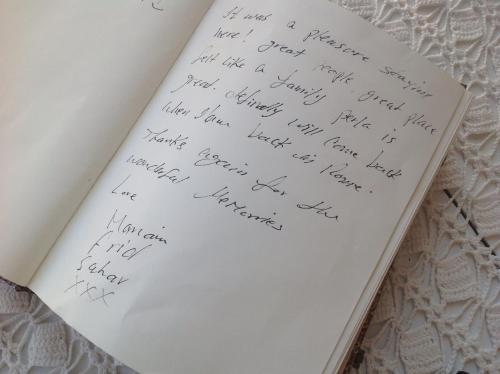 It was a pleasure staying
here! great people great place
felt like a family perla is
great. definelly will come back
when I am back in Rome.
Thanks again for the
wonderful Memories
Love
Mariam
Frid
Sahar
XXX